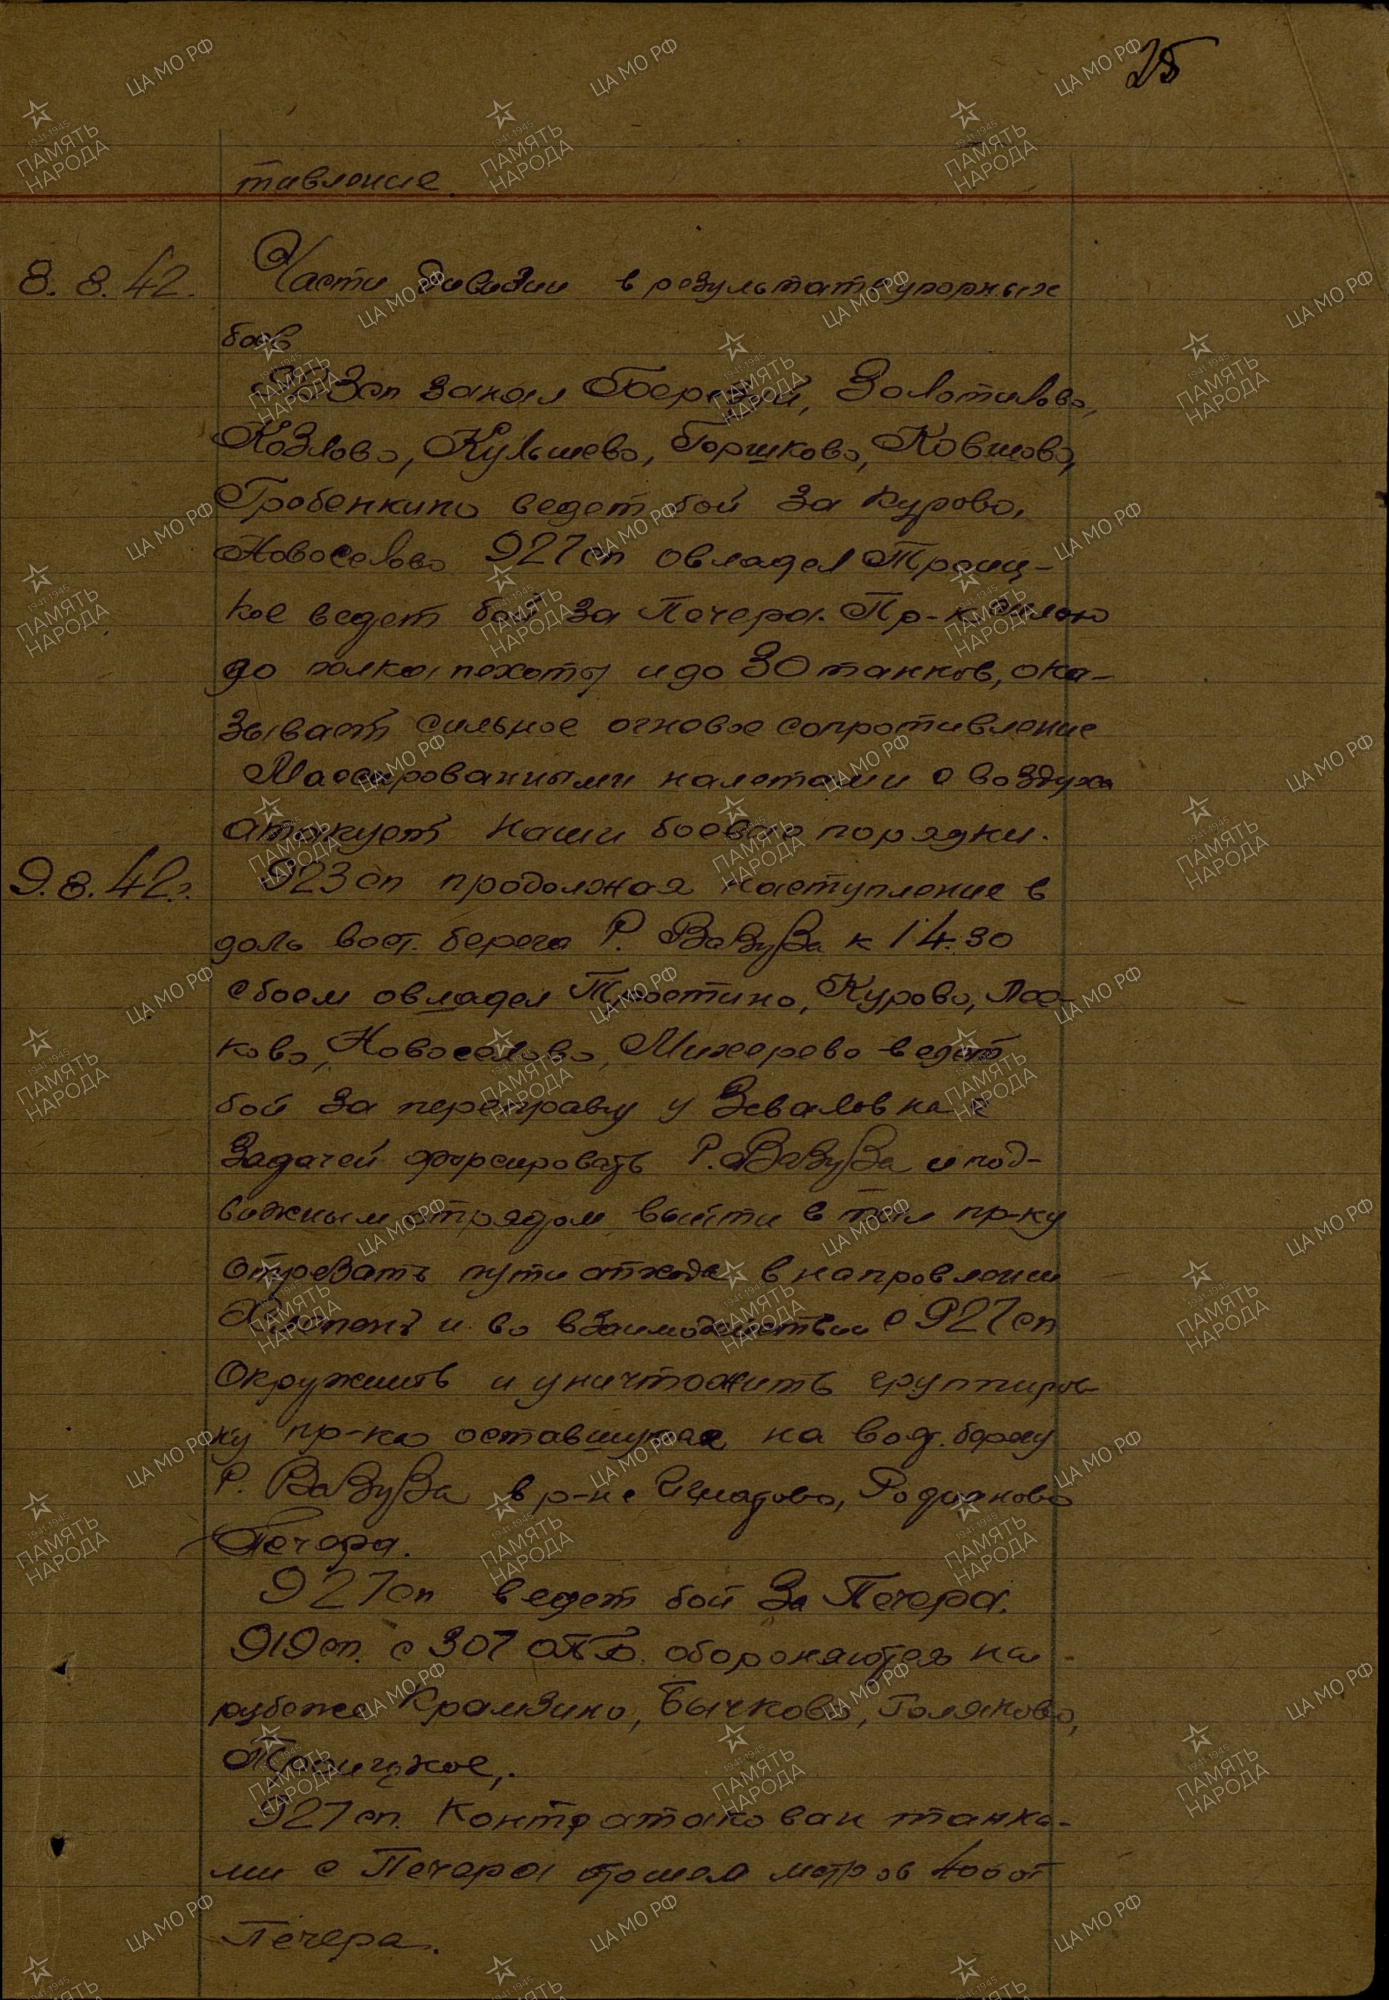 25
тивление.
8.8.42. Части дивизии в результате упорных
боев
923сп занял Березуй, Золотилово,
Козлово, Кульшево, Горшково, Ковшово,
Гребенкино ведет бой за Курово,
Новоселово 927сп овладел Троиц-
кое ведет бой за Печера. Пр-к силою
до полка пехоты и до 30 танков, ока-
зывает сильное огневое сопротивление
Массированными налетами с воздуха
атакует наши боевые порядки.
9.8.42г. 923сп продолжая наступление в
доль вост. берега р. Вазуза к 14.30
с боем овладел Тростино, Курово, Лес-
ково, Новоселово, Михерево ведет
бой за переправу у Зеваловка с
задачей форсировать р. Вазуза и под-
вижным отрядом выйти в тыл пр-ку
отрезать пути отхода в направлении
Хлепень и во взаимодействии с 927сп
окружить и уничтожить группиров-
ку пр-ка оставшуюся на вост. берегу
р. Вазуза в р-не Игнатово, Родионово
Печера.
927сп ведет бой за Печера.
919сп. с 307 ОПТБ. обороняются на
рубеже Крамзино, Бычково, Голяково,
Троицкое,.
927сп. контратакован танка-
ми с Печера отошел метров 400 от
Печера.